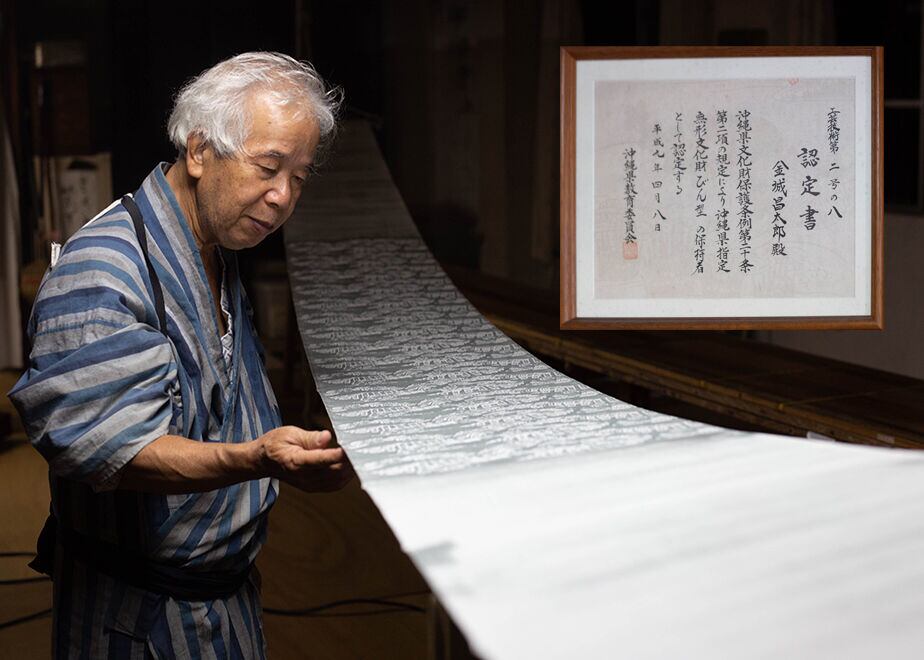 工芸技術第二号の八
認定書
金城昌太郎殿
沖縄県文化財保護条例第二十条
第二項の規定により沖縄県指定
無形文化財びん型の保持者
として認定する
平成九年四月八日
沖縄県教育委員会